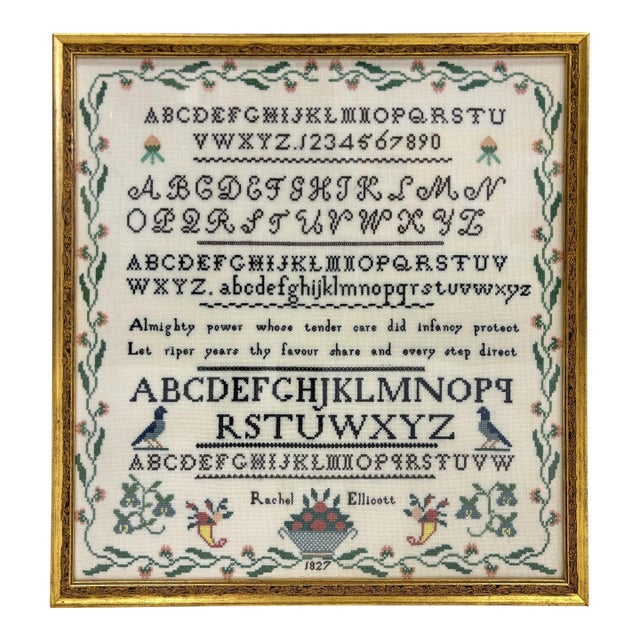 ABCDEFGHIJKLMNOPQRSTU
VWXYZ.1234567890
ABCDEFGHIJKLMN
OPQRSTUVWXYZ
ABCDEFGHIJKLMNOPQRSTUV
WXYZ.abcdefghijklmnopqrstuvwxyz
Almighty power whose tender care did infancy protect
Let riper years thy favour share and every step direct
ABCDEFGHIJKLMNOPq
RSTUWXYZ
ABCDEFGHIJKLMNOPqRSTUVW
Rachel Ellicott
1827